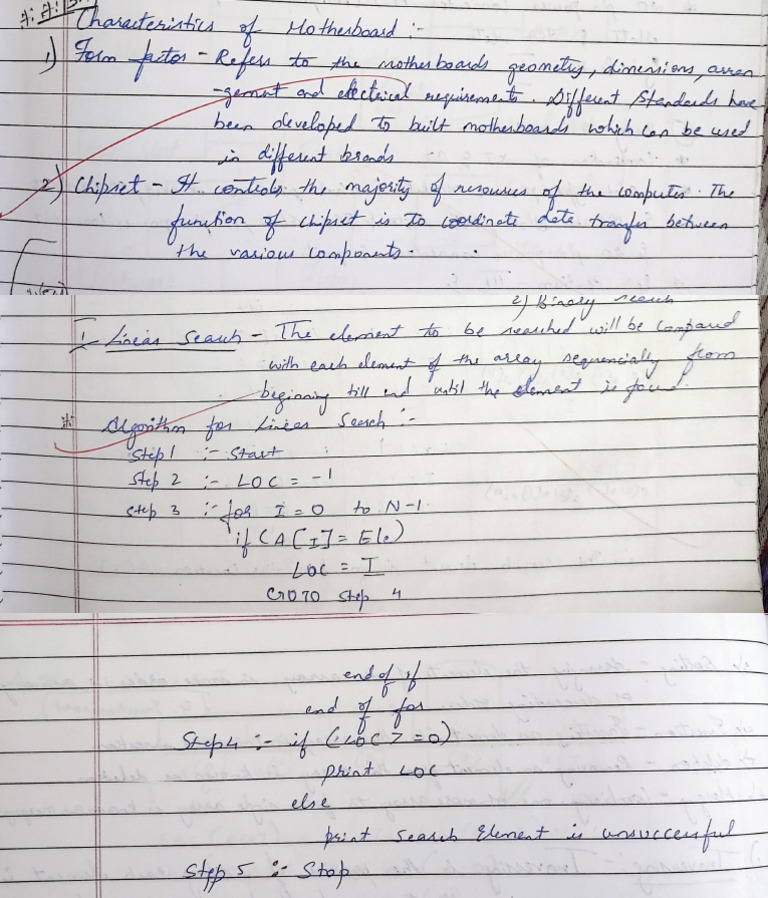 Characteristics of Motherboard :-
1) Form factor - Refers to the motherboards geometry, dimensions, arran
-gemnt and electrical requirements. Different standards have
been developed to built motherboards which can be used
in different brands
2) Chipset - It controls the majority of resources of the computer. The
function of chipset is to coordinate data transfer between
the various components.
2) Binary search
1. Linear Search - The element to be searched will be compared
with each element of the array sequencially from
beginning till end until the element is found.
* Algorithm for Linear Search :-
Step 1 :- Start
Step 2 :- LOC = -1
Step 3 :- for I = 0 to N-1
if (A[I] = Ele)
LOC = I
GOTO Step 4
end of if
end of for
Step 4 :- if (LOC >= 0)
print LOC
else
print Search Element is unsuccessful
Step 5 :- Stop